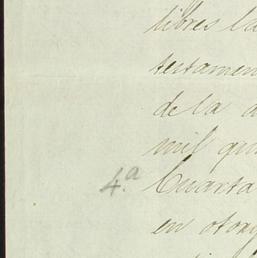 libres la
testamen
de la a
mil qui
4.a Cuarta
en otorg